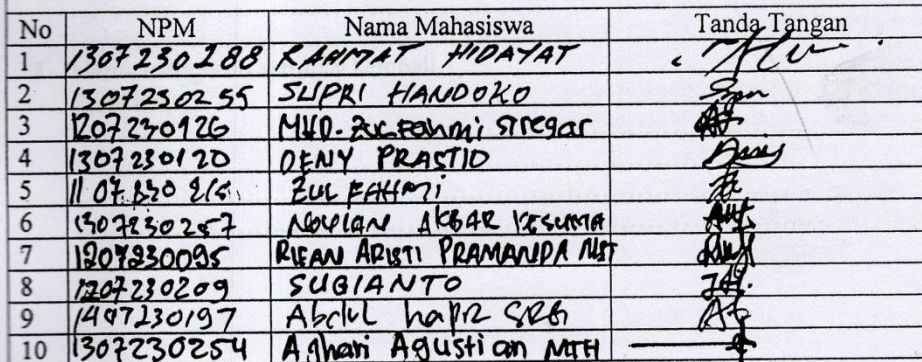 No NPM Nama Mahasiswa Tanda Tangan
1 1307230288 RAHMAT HIDAYAT
2 1307230255 SUPRI HANDOKO
3 1207230126 MHD. ZULFAHMI Siregar
4 1307230120 DENY PRASTIO
5 ZUL FAHMI
6 1307230257 NOVIAN AKBAR KESUMA
7 1207230095 RIFAN ARISTI PRAMANDA NST
8 1207230209 SUGIANTO
9 1407230197 Abdul hafiz SRG
10 1307230254 Azhari Agustian MTH